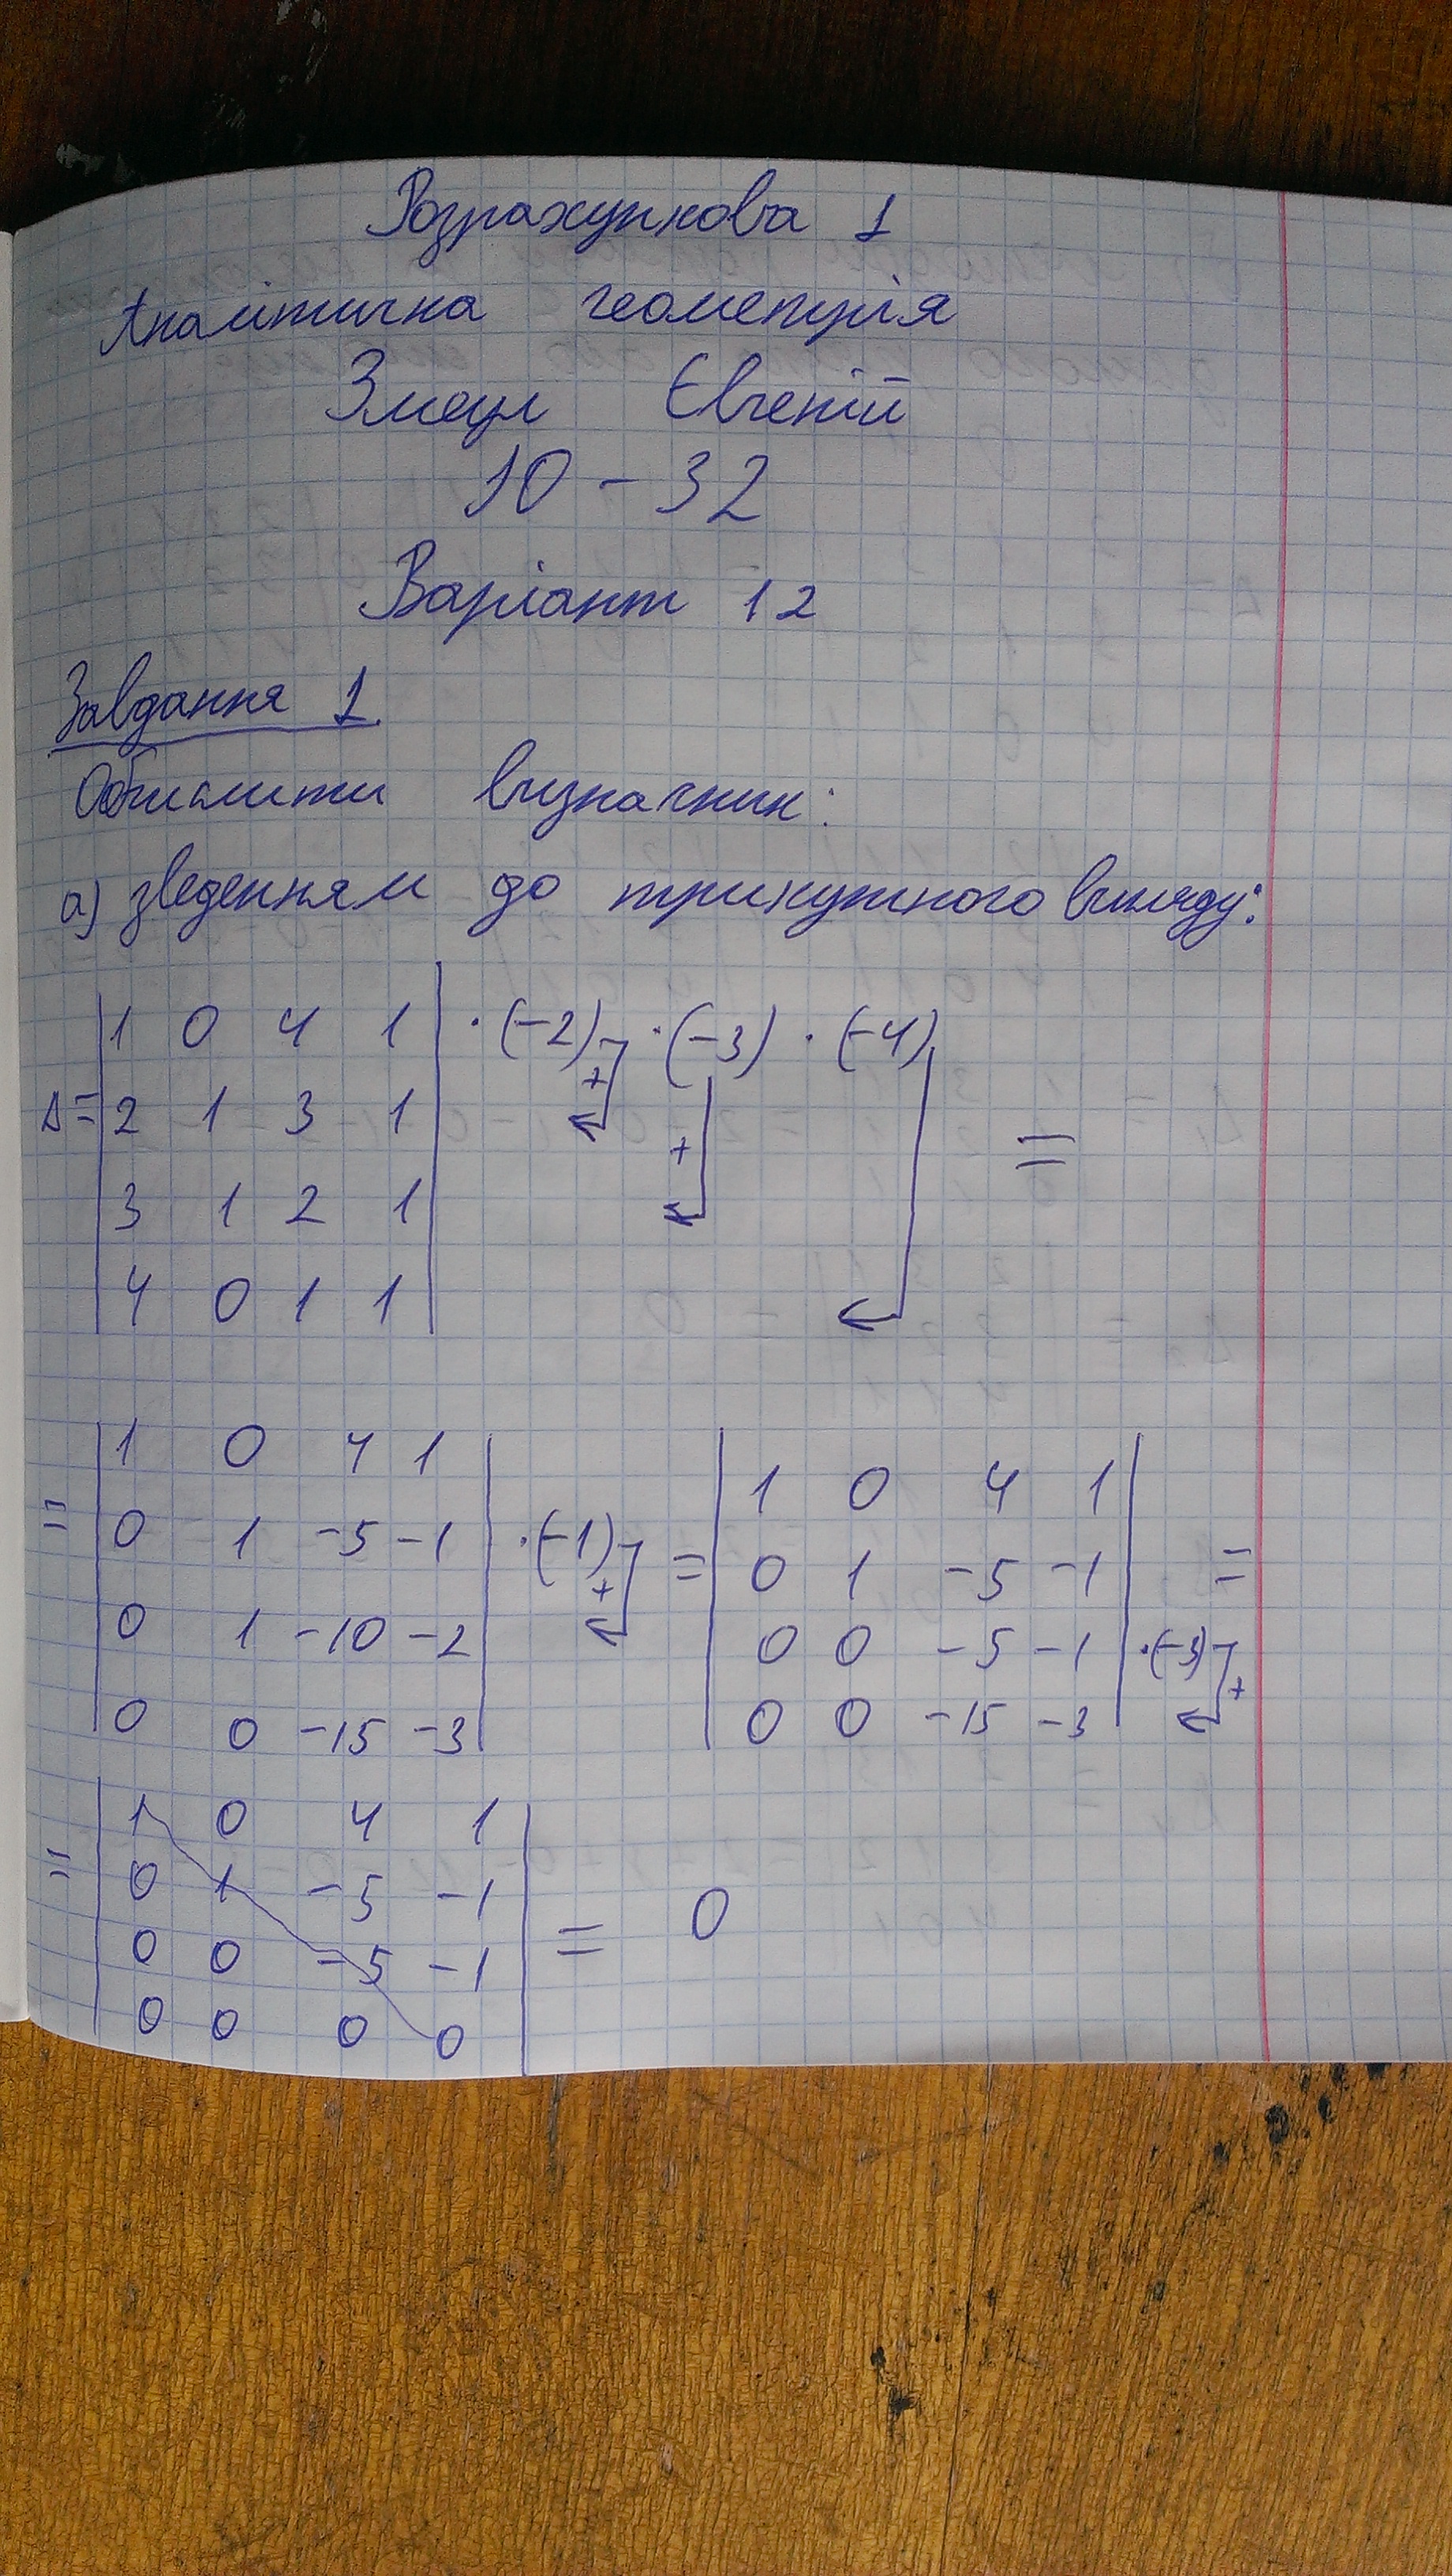 Розрахункова 1
Аналітична геометрія
Євгеній
10 - 32
Варіант 12
Завдання 1.
Обчислити визначник:
а) зведенням до трикутного вигляду:
| 1 0 4 1 | · (-2) · (-3) · (-4)
Δ = | 2 1 3 1 | + =
| 3 1 2 1 | +
| 4 0 1 1 |
| 1 0 4 1 | | 1 0 4 1 |
= | 0 1 -5 -1 | · (-1) = | 0 1 -5 -1 | =
| 0 1 -10 -2 | + | 0 0 -5 -1 | · (-3)
| 0 0 -15 -3 | | 0 0 -15 -3 | +
| 1 0 4 1 |
= | 0 1 -5 -1 | = 0
| 0 0 -5 -1 |
| 0 0 0 0 |